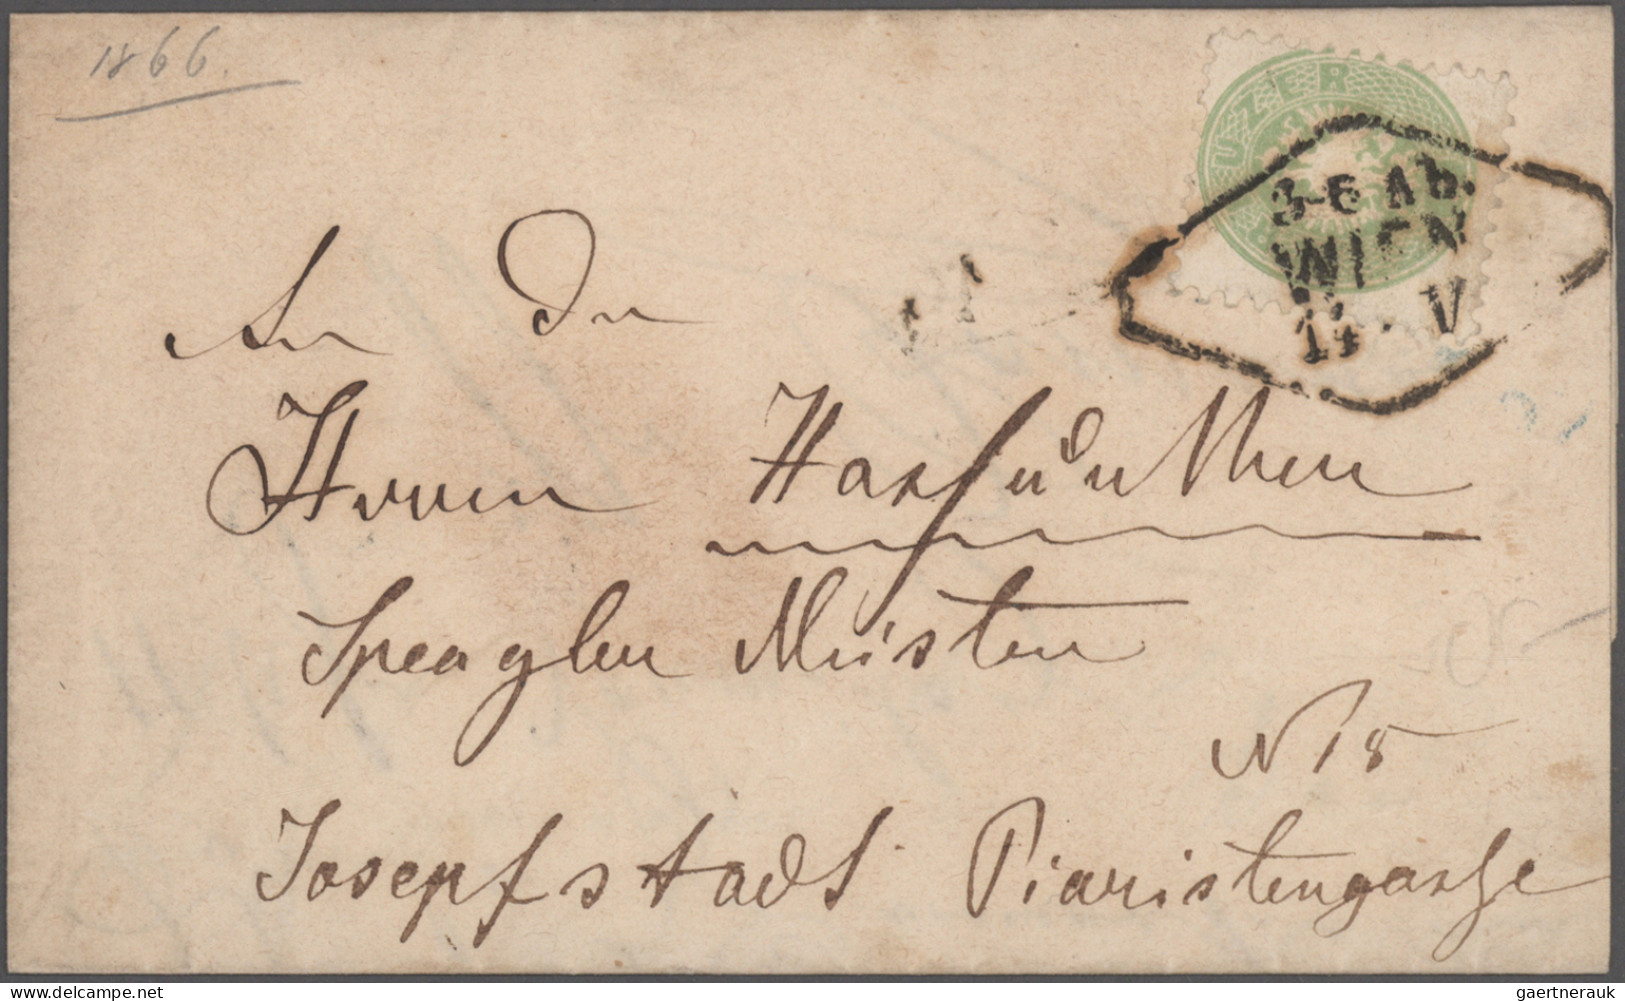 1866.
UZER
3-6 Ab.
WIEN
14 V
An den
Herrn
Spengler Meister
N 18
Josephstadt Piaristengasse
delcampe.net
gaertnerauk